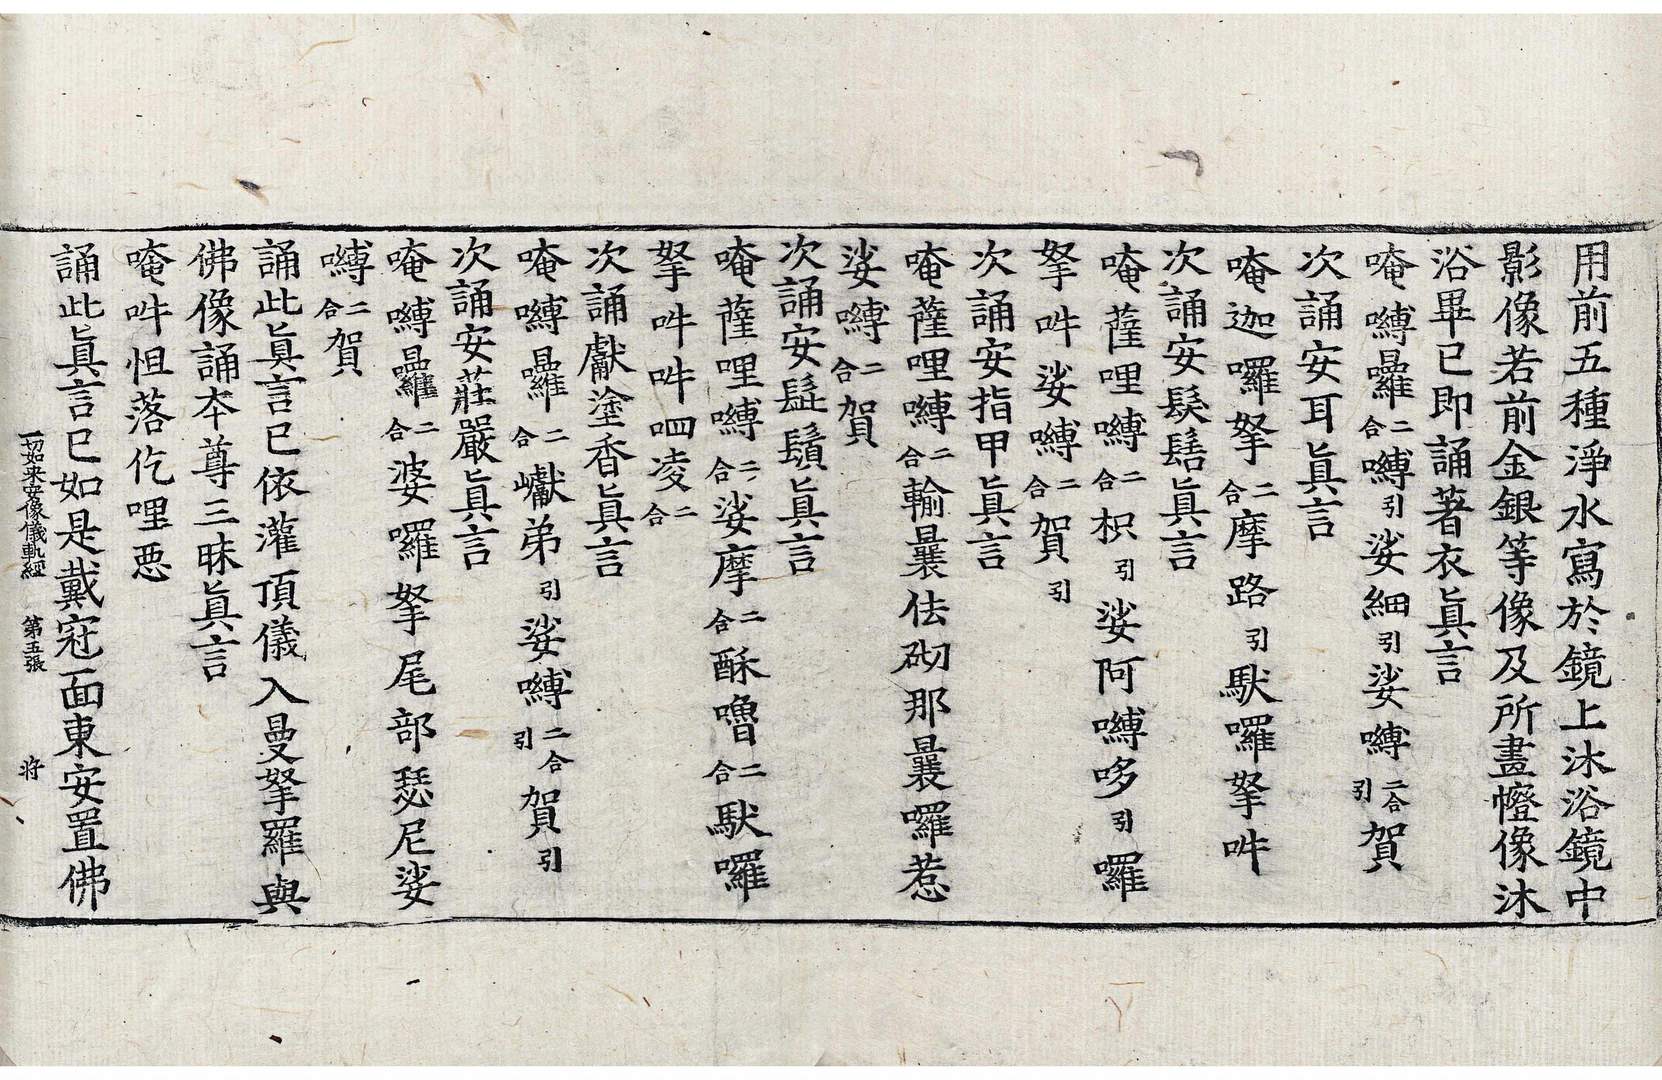 用前五種淨水寫於鏡上沐浴鏡中
影像若前金銀等像及所畫幀像沐
浴畢已即誦著衣眞言
唵嚩囉二合嚩引娑細引娑嚩二合引賀
次誦安耳眞言
唵迦囉拏二合摩路引馱囉拏吽
次誦安髮髻眞言
唵薩哩嚩二合枳引娑阿嚩哆引囉
拏吽娑嚩二合賀引
次誦安指甲眞言
唵薩哩嚩二合輸曩佉砌那曩囉惹
娑嚩二合賀
次誦安髭鬚眞言
唵薩哩嚩二合娑摩二合酥嚕二合馱囉
拏吽吽呬凌二合
次誦獻塗香眞言
唵嚩囉二合巘弟引娑嚩二合引賀引
次誦安莊嚴眞言
唵嚩囉二合婆囉拏尾部瑟尼娑
嚩二合賀
誦此眞言已依灌頂儀入曼拏羅與
佛像誦本尊三昧眞言
唵吽怛落仡哩惡
誦此眞言已如是戴冠面東安置佛
一切如来安像儀軌經 第五張 将